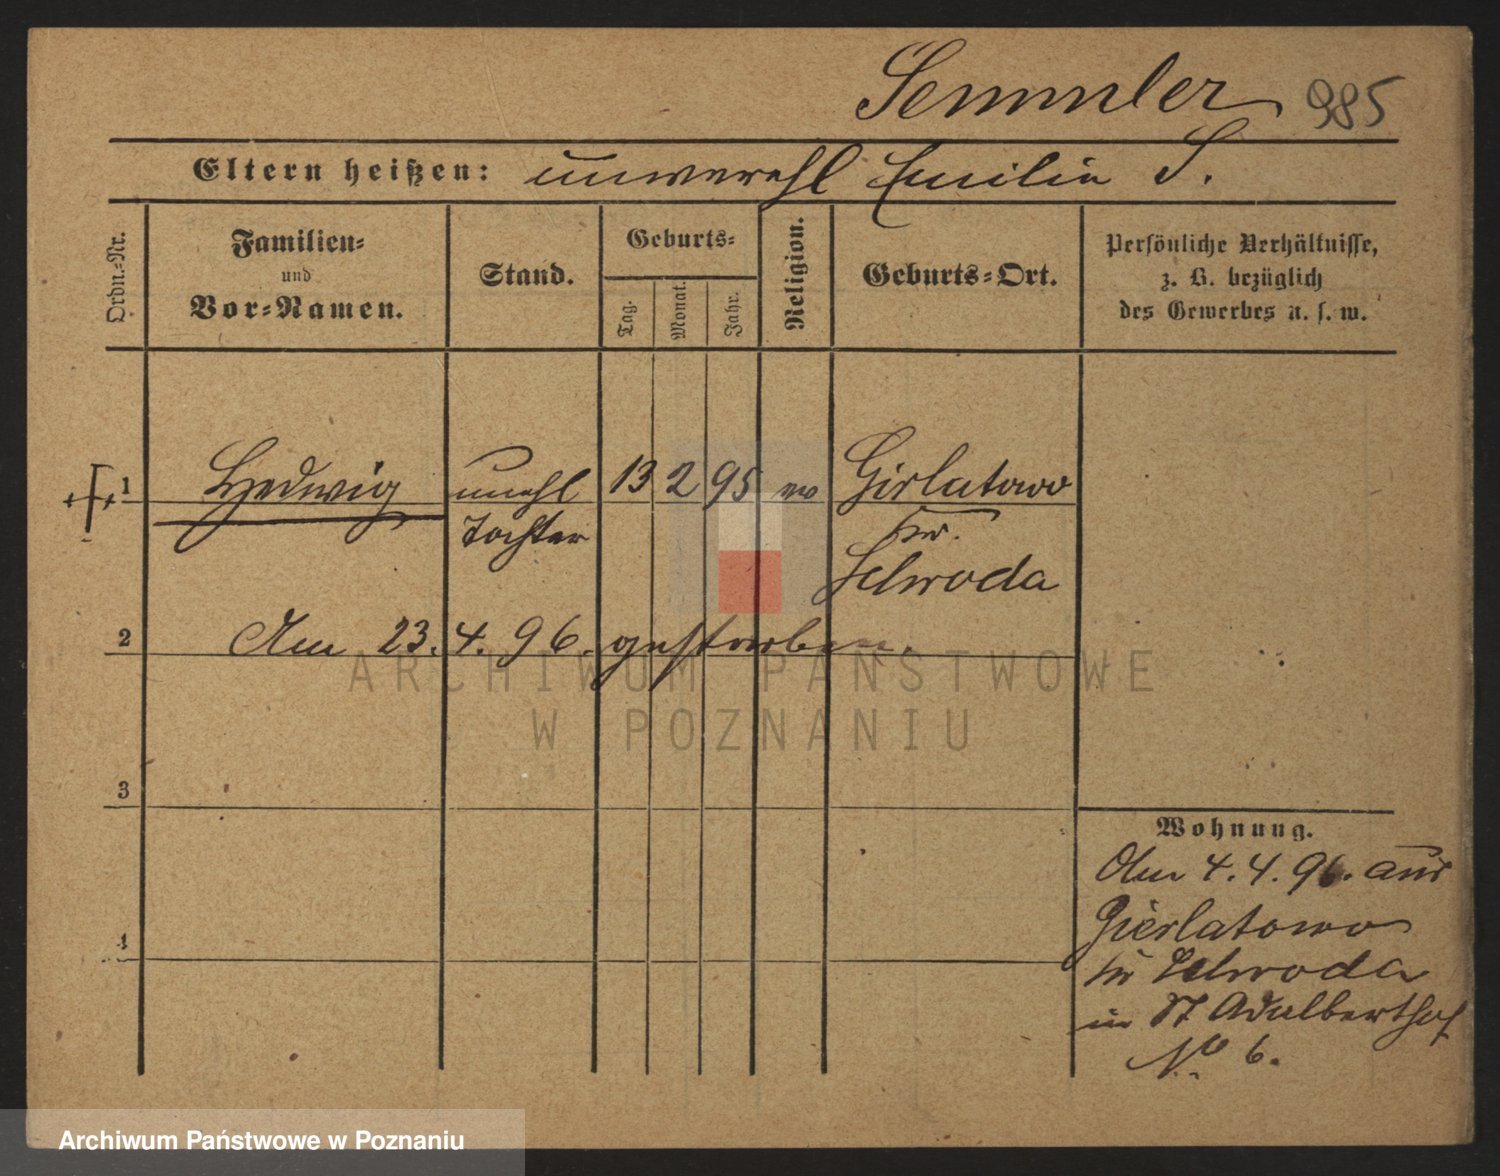 Semmler 985
Eltern heißen: unverehl Emilie S.
Ordn.-Nr.
Familien-
und
Vor-Namen.
Stand.
Geburts-
Tag.
Monat.
Jahr.
Religion.
Geburts-Ort.
Persönliche Verhältnisse,
z. B. bezüglich
des Gewerbes u. s. w.
1 Hedwig unehl 13 2 95 ev Girlatowo
Tochter Kr.
Schroda
2 Am 23. 4. 96. gestorben.
3
4
Wohnung.
Am 4. 4. 96. aus
Gierlatowo
Kr Schroda
in St Adalberthof
No 6.
ARCHIWUM PAŃSTWOWE
W POZNANIU
Archiwum Państwowe w Poznaniu